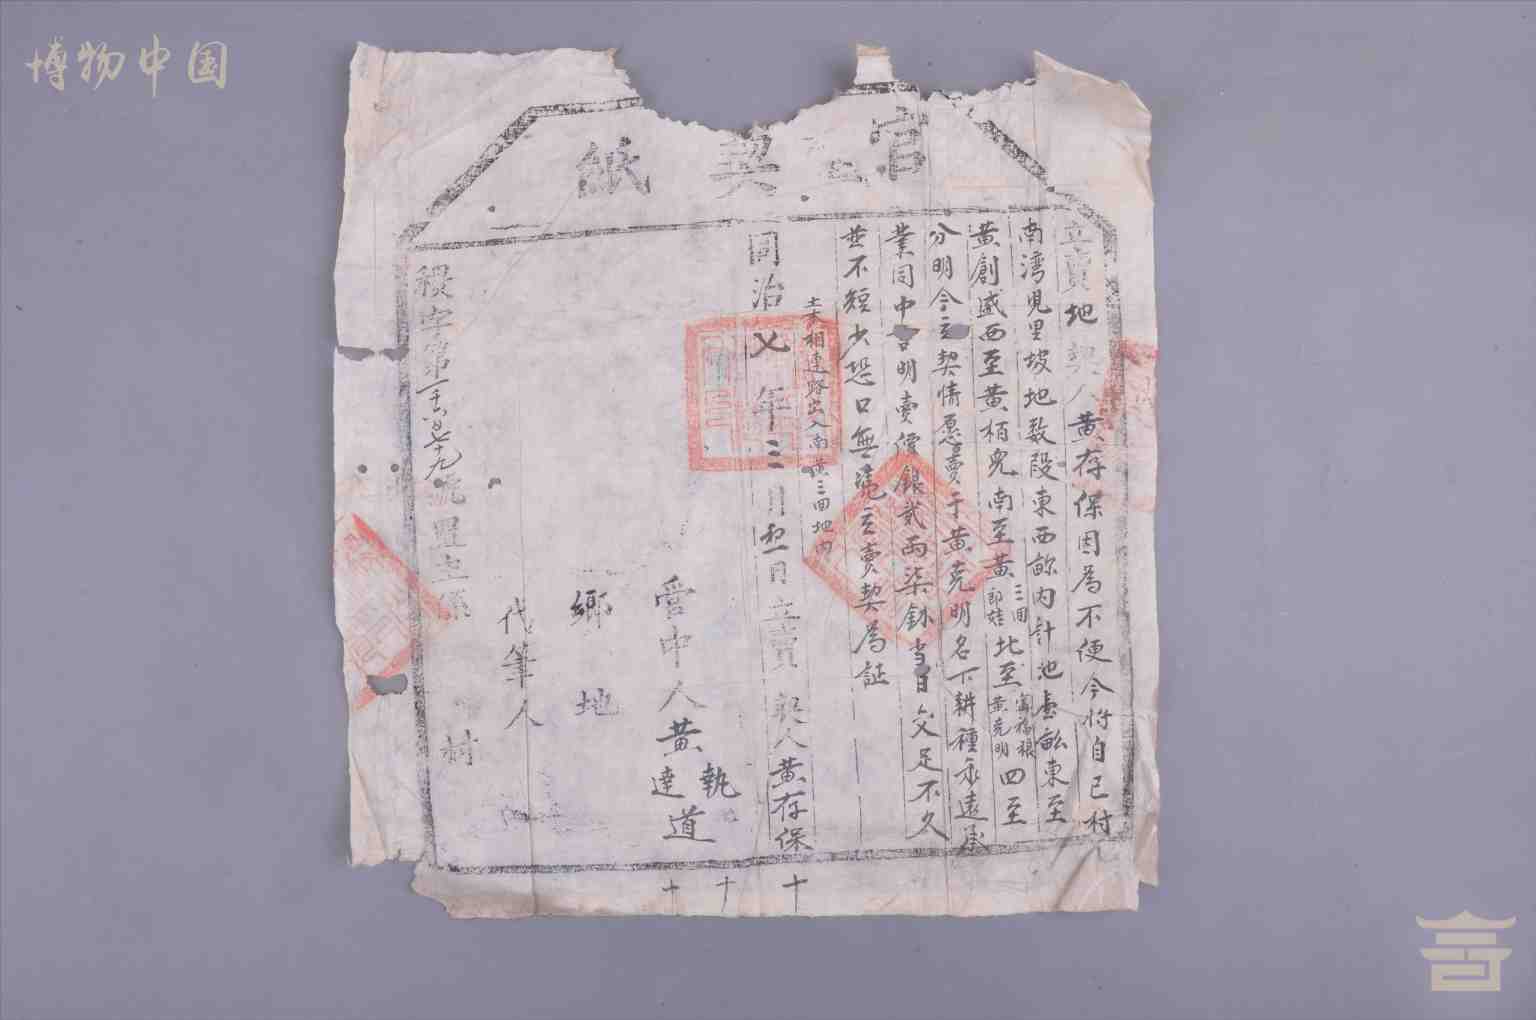 博物中国
官契紙
立賣地契人黄存保因為不便今将自己村
南湾児里坡地数段東西畝内計地壹畝東至
黄創盛西至黄栢児南至黄三田郎娃北至黄克明四至
分明今立契情愿賣于黄克明名下耕種永遠承
業同中言明賣價銀貳両柒錢当日交足不欠
並不短少恐口無憑立賣契為証
土木相連路出入南
三田地内
同治七年三月初一日立賣契人黄存保 十
管中人黄執達道 十 十
鄉地
代筆人
稷字第一千六百七十九號置主係 村